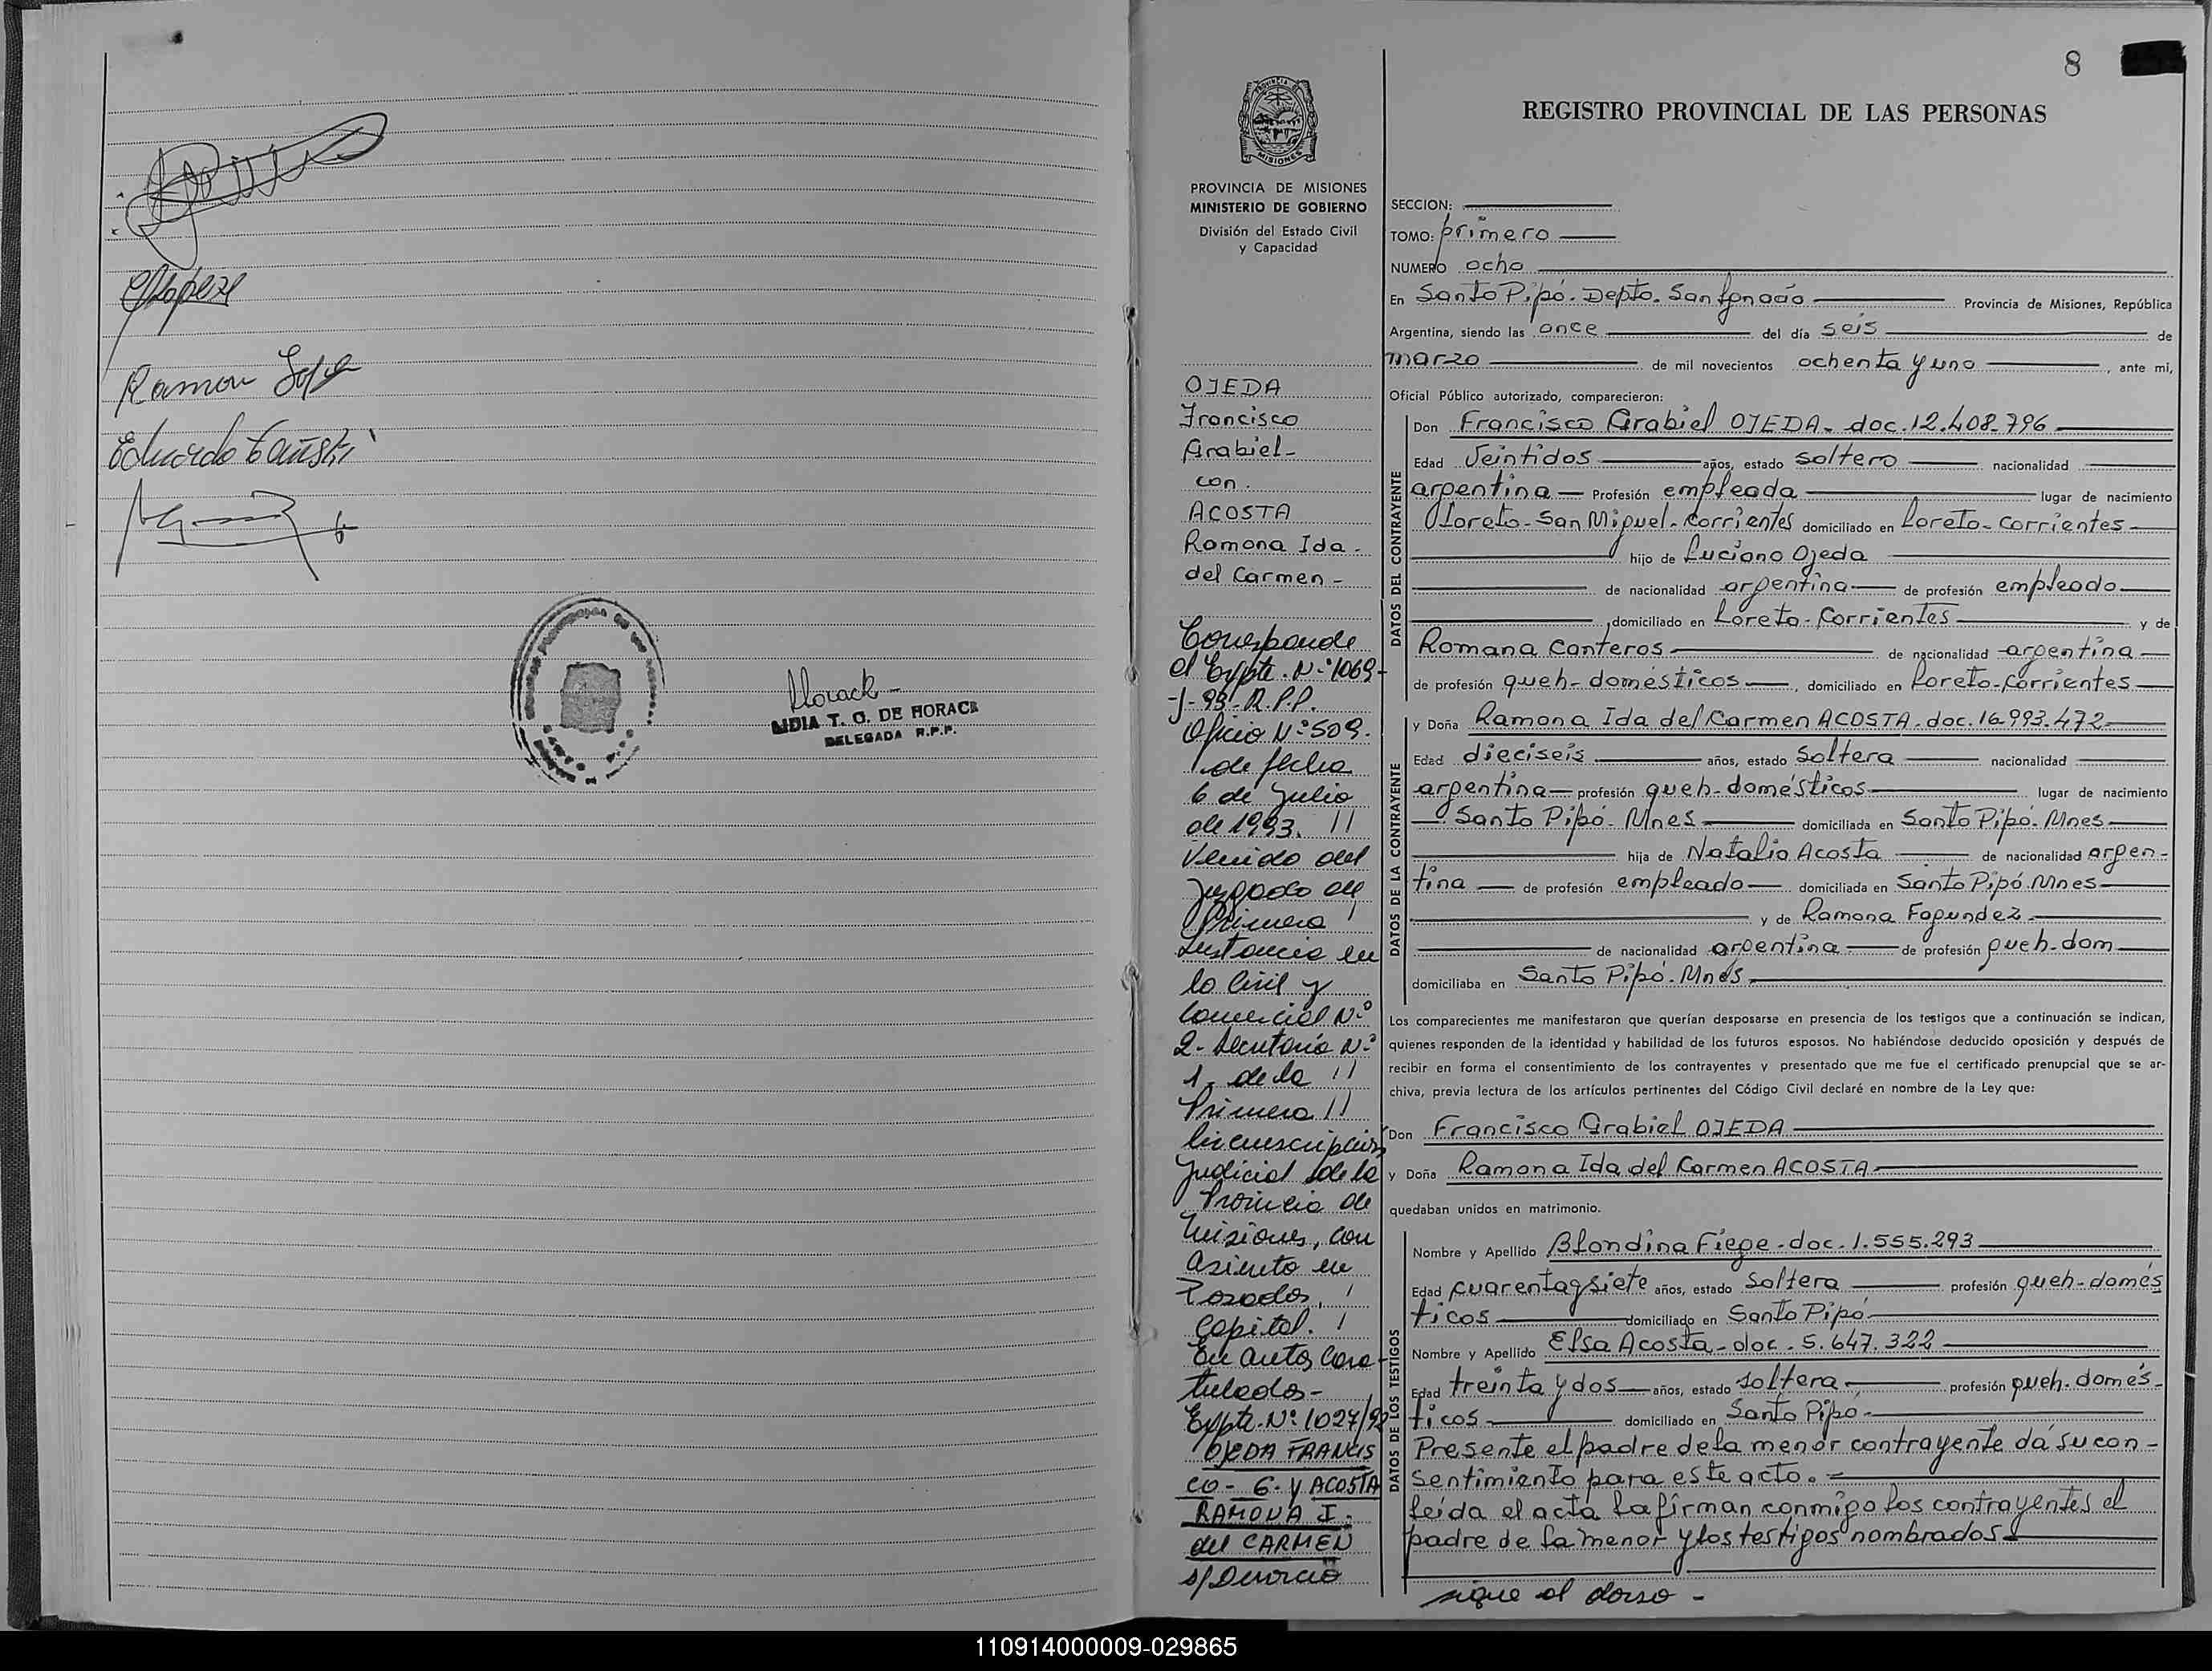 Ramon
Eduardo
Horack -
LIDIA T. G. DE HORACK
DELEGADA R.P.P.
8
PROVINCIA DE MISIONES
MINISTERIO DE GOBIERNO
División del Estado Civil
y Capacidad
OJEDA
Francisco
Grabiel-
con.
ACOSTA
Ramona Ida-
del Carmen-
Corresponde
al Expte. N-º 1069-
-J-93-R.P.P.
Oficio N-º 509.
de fecha
6 de Julio
de 1993. //
Venido del
Juzgado de
Primera /
Instancia en
lo Civil y
Comercial N.º
2- Secretaría N-º
1. de la //
Primera //
Circunscripción
Judicial de la
Provincia de
Misiones, con
asiento en
Posadas, /
Capital. /
En autos Cara-
tulados-
Expte. Nº 1027/92
OJEDA FRANCIS
CO - G. Y ACOSTA
RAMONA I.
del CARMEN
s/Divorcio
REGISTRO PROVINCIAL DE LAS PERSONAS
SECCION:
TOMO: primero
NUMERO ocho
En Santo Pipó. Depto. San Ignacio Provincia de Misiones, República
Argentina, siendo las once del día seis de
marzo de mil novecientos ochenta y uno, ante mi,
Oficial Público autorizado, comparecieron:
DATOS DEL CONTRAYENTE
Don Francisco Grabiel OJEDA- doc. 12.408.796
Edad Veintidos años, estado soltero nacionalidad
argentina — Profesión empleada lugar de nacimiento
Loreto-San Miguel-Corrientes domiciliado en Loreto-Corrientes
hijo de Luciano Ojeda
de nacionalidad argentina de profesión empleado
,domiciliado en Loreto-Corrientes y de
Romana Canteros de nacionalidad argentina
de profesión queh-domésticos, domiciliado en Loreto-Corrientes
DATOS DE LA CONTRAYENTE
y Doña Ramona Ida del Carmen ACOSTA-doc.16.993.472
Edad dieciseis años, estado soltera nacionalidad
argentina — profesión queh-domésticos lugar de nacimiento
Santo Pipó- Mnes domiciliada en Santo Pipó-Mnes
hija de Natalio Acosta de nacionalidad argen-
tina — de profesión empleado domiciliada en Santo Pipó.Mnes
y de Ramona Fagundez
de nacionalidad argentina de profesión queh-dom
domiciliaba en Santo Pipó.Mnes.
Los comparecientes me manifestaron que querían desposarse en presencia de los testigos que a continuación se indican,
quienes responden de la identidad y habilidad de los futuros esposos. No habiéndose deducido oposición y después de
recibir en forma el consentimiento de los contrayentes y presentado que me fue el certificado prenupcial que se ar-
chiva, previa lectura de los artículos pertinentes del Código Civil declaré en nombre de la Ley que:
Don Francisco Grabiel OJEDA
y Doña Ramona Ida del Carmen ACOSTA
quedaban unidos en matrimonio.
DATOS DE LOS TESTIGOS
Nombre y Apellido Blondina Fiege-doc.1.555.293
Edad cuarentaysiete años, estado soltera profesión queh-domés
ticos domiciliado en Santo Pipó
Nombre y Apellido Elsa Acosta-doc.5.647.322
Edad treinta y dos años, estado soltera profesión queh-domés-
ticos domiciliado en Santo Pipó-
Presente el padre dela menor contrayente dá su con-
sentimiento para este acto.
Leída el acta la firman conmigo los contrayentes el
padre de la menor y los testigos nombrados
sigue al dorso -
110914000009-029865